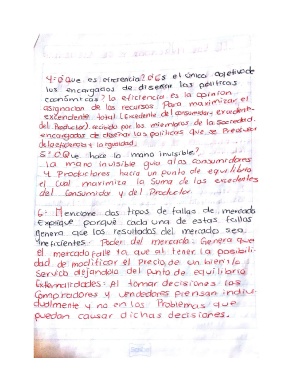 4: ¿Que es eficiencia? ¿Es el único objetivo de
los encargados de diseñar las políticas
económicas? la eficiencia es la
asignacion de los recursos Para maximizar el
excendente total (Excedente del consumidor y excedente
del Productor) recibido por los miembros de la Sociedad.
encargados de diseñar las políticas que se
de la eficiencia y la equidad.
5: ¿Que hace la mano invisible?
La mano invisible guia alos consumidores
y Productores hacia un punto de equilibrio
el cual maximiza la Suma de los excedentes
del Consumidor y del Productor.
6: Mencione dos tipos de fallas de mercado
Explique porqué cada una de estas fallas
genera que los resultados del mercado sea
ineficientes. Poder del mercado: Genera que
el mercado falle ya que al tener la posibili-
dad de modificar el Precio de un bien y/o
Servicio dejandolo del punto de equilibrio
Externalidades: Al tomar decisiones los
Compradores y vendedores piensan indivi-
dualmente y no en los Problemas que
puedan causar dichas decisiones.